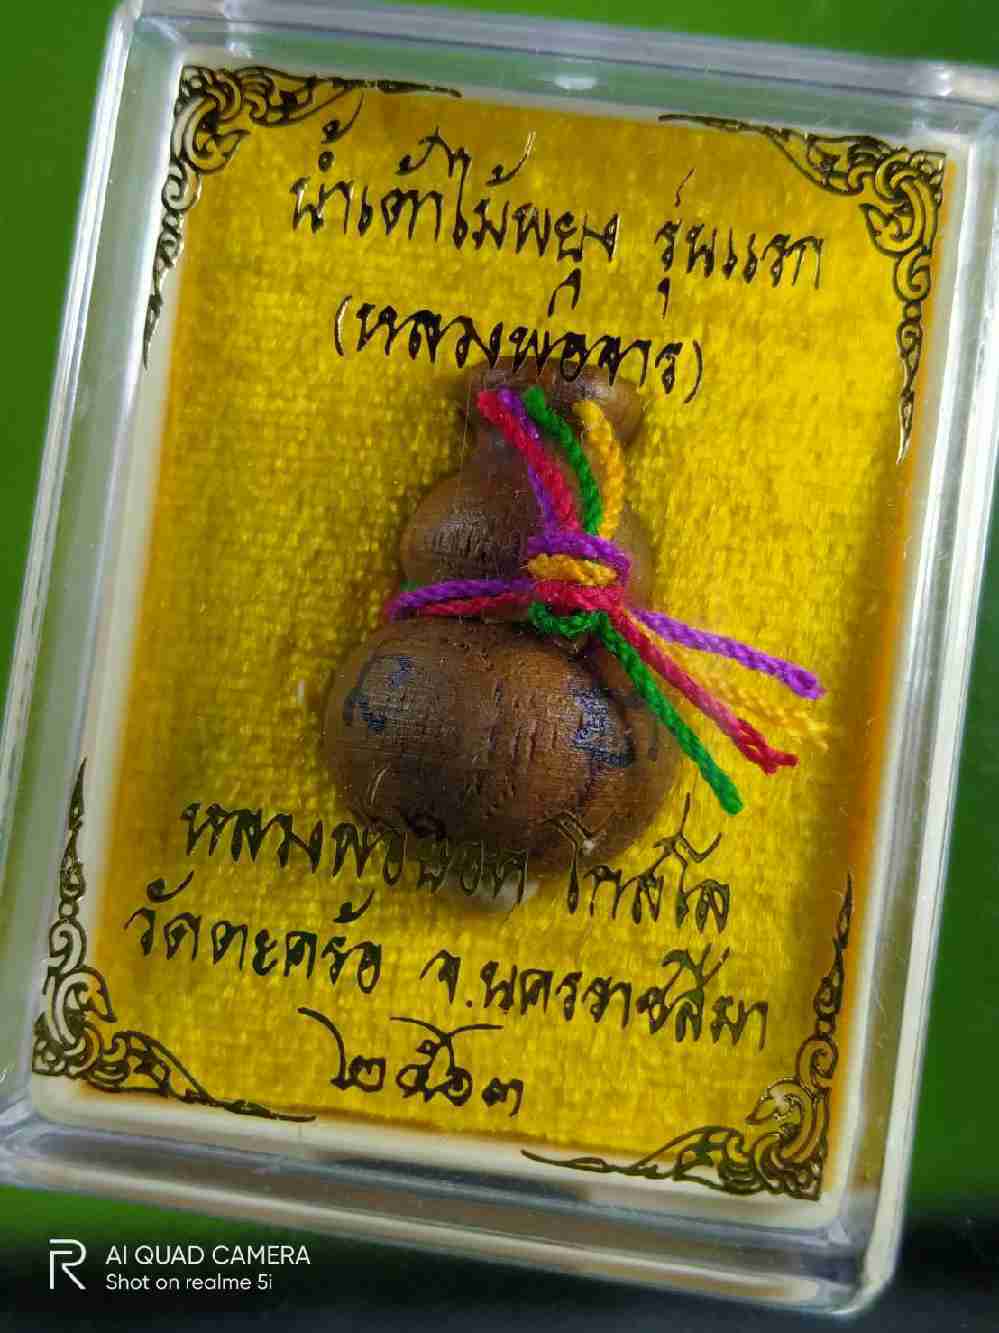 น้ำเต้าไม้พยุง รุ่นแรก
(หลวงพ่อจาร)
หลวงพ่อ โกสโล
วัดตะคร้อ จ.นครราชสีมา
๒๕๖๓
AI QUAD CAMERA
Shot on realme 5i